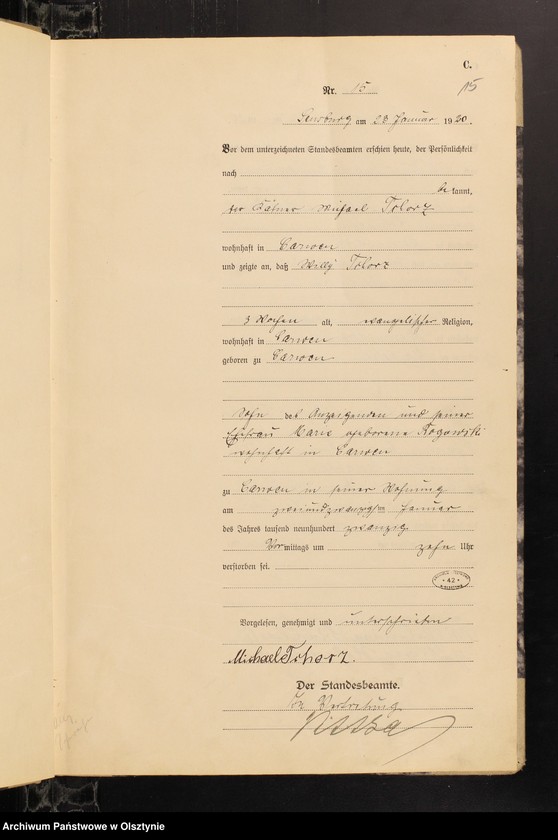 C.
Nr. 15
15
Sensburg am 23 Januar 1920.
Vor dem unterzeichneten Standesbeamten erschien heute, der Persönlichkeit
nach
be kannt,
der Kätner Michael Tolorz
wohnhaft in Carwen
und zeigte an, daß Willy Tolorz
3 Wochen alt, evangelischer Religion,
wohnhaft in Carwen
geboren zu Carwen
Sohn des Anzeigenden und seiner
Ehefrau Marie geborene Rogowski
wohnhaft in Carwen
zu Carwen in seiner Wohnung
am zweiundzwanzigsten Januar
des Jahres tausend neunhundert zwanzig
Vor mittags um zehn Uhr
verstorben sei.
42
Vorgelesen, genehmigt und unterschrieben
Michael
Der Standesbeamte.
In Vertretung
Archiwum Państwowe w Olsztynie